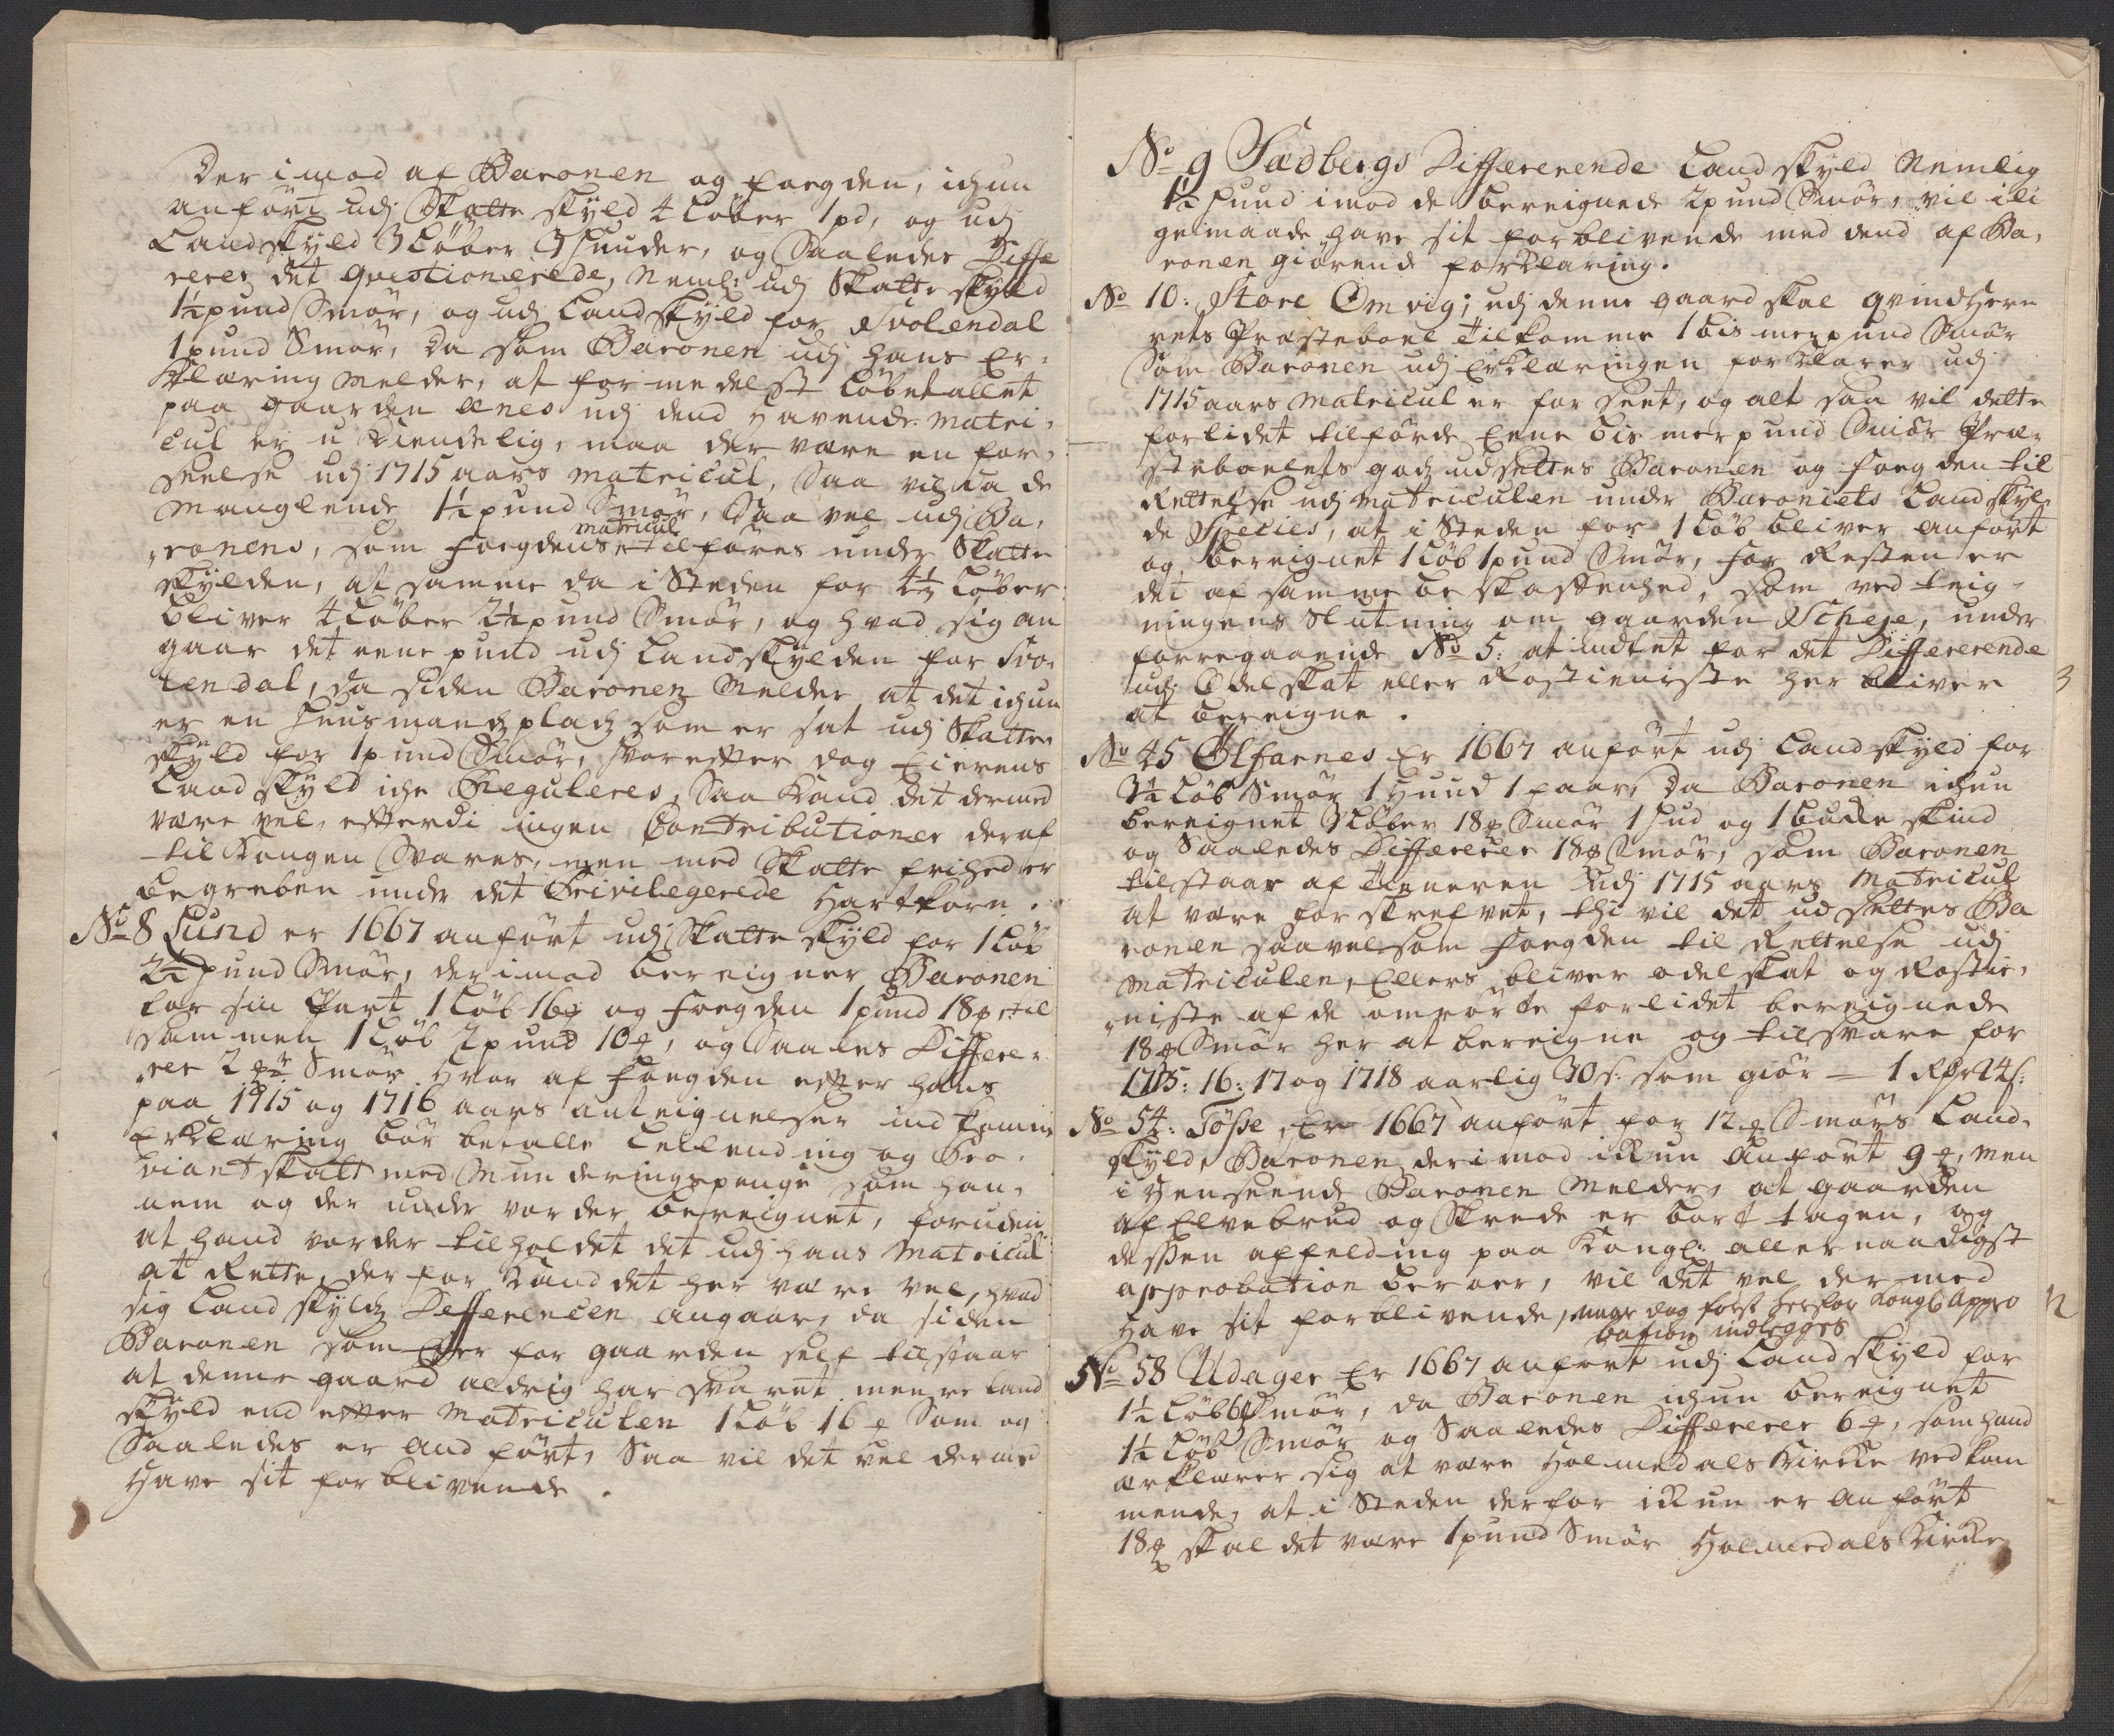 Der imod af Baronen og Fogden, ichun
anført udj Skatte skyld 4 Løber 1 pd, og udj
Landskyld 3 Løber 3 Huuder, og Saaledes Diffe
rerer det questionerede, Neml: udj Skatte skyld
1½ pund Smør, og udj Landskyld for Svolendal
1 pund Smør, Da som Baronen udj hans Er-
klæring Melder, at formedelst Løbetallet
paa gaarden Ænes udj dend havende Matri,
cul er u-kiendelig, maa der være en for,
seelse udj 1715 aars Matricul, Saa vil da de
Manglende 1½ pund Smør, Saa vel udj Ba,
ronens, som Fogdens matricul tilføres under Skatte
skylden, at samme da i Steden for 4½ Løber
bliver 4 Løber 2½ pund Smør, og hvad sig an
gaar det eene pund udj Landskylden for Svo-
lendal, da siden Baronen Melder at det ichun
er en Huusmands plads som er sat udj Skatte-
skyld for 1 pund Smør, hvor efter dog Eierens
Landskyld iche Reguleres, Saa kand det dermed
være vel, efterdi ingen Contributioner deraf
til Kongen Svares, men med Skatte frihed er
begreben under det Privilegerede Hartkorn.
No 8 Lund er 1667 anført udj Skatte skyld for 1 Løb
2½ pund Smør, derimod bereigner Baronen
for sin Part 1 Løb 16 # og Fogden 1 pund 18 # til
sammen 1 Løb 2 pund 10 #, og Saaledes Differe-
rer 2 # Smør hvor af Fogden efter hans
paa 1715 og 1716 aars anteignelser indkomne
Erklæring bør betalle Lellending og Pro-
viant skatt med Munderingspenge som han,
nem og der under vorder bereignet, foruden
at hand vorder tilholdet det udj hans Matricul
at Rette, der for kand det her være vel, hvad
sig Landskylds Defferencen angaar, da siden
Baronen som Eier for gaarden self tilstaar
at denne gaard aldrig har svaret meere Land
skyld end efter Matriculen 1 Løb 16 # Som og
Saaledes er and ført, Saa vil det vel dermed
Have sit forblivende.
No 9 Sædbergs Differerende Landskyld Nemlig
1½ Huud imod de bereignede 2 pund Smør, vil ili
gelmaade have sit forblivende med dend af Ba,
ronen giørende forklaring.
No 10: Store Omvig; udj denne gaard skal Qvindher
rets Præsteboel tilkomme 1 bismerpund Smør
Som Baronen udj Erklæringen forklarer udj
1715 aars Matricul er forseet, og alt saa vil dette
forlidet tilførde Eene bismerpund Smør Præ-
steboelets gods udsettes Baronen og Fogden til
Rettelse udj Matriculen under Baroniets Landskyl-
de Species, at i Steden for 1 Løb bliver anført
og bereignet 1 Løb 1 pund Smør, for Resten er
det af samme beskaffenhed, som ved teig-
ningens Slutning om gaarden Scheje, under
forregaaende No 5: at indtet for det Differerende
udj Odelskat eller Rostieniste her bliver
at bereigne.
No 45 Ølfarnes Er 1667 anført udj Landskyld for
3½ Løb Smør 1 Huud 1 paar, Da Baronen ichun
bereignet 3 Løber 18 # Smør 1 Hud og 1 bukke skind
og Saaledes Differerer 18 # Smør, som Baronen
tilstaar af Tieneren udj 1715 aars Matricul
at være forskrefvet, thi vil det udsettes Ba
ronen saavelsom Fogden til Rettelse udj
Matriculen, Ellers bliver Odelskat og Rostie,
niste af de omrørte forlidet bereignede
18 # Smør her at bereigne og tilsvare for
1715: 16: 17 og 1718 aarlig 30 s: som giør — 1 Rdr 24 s:
3
No 54: Tøsse, Er 1667 anført for 12 # Smørs Land-
skyld, Baronen derimod ikkun Anført 9 #, men
i Henseende Baronen Melder, at gaarden
af Elvebrud og Skrede er bort tagen, og
dessen affelding paa Kongl: allernaadigst
approbation beroer, vil det vel der med
Have sit forblivende, naar dog først herfor Kongl: Appro
bation indlegges
No 58 Udager Er 1667 anført udj Landskyld for
1½ Løb 6 # Smør, da Baronen ichun bereignet
1½ Løb Smør og Saaledes Differerer 6 #, som hand
ærklærer sig at være Holmedals Kirke vedkom
mende, at i Steden derfor ikkun er anført
18 # skal det være 1 pund Smør Holmedals Kirke